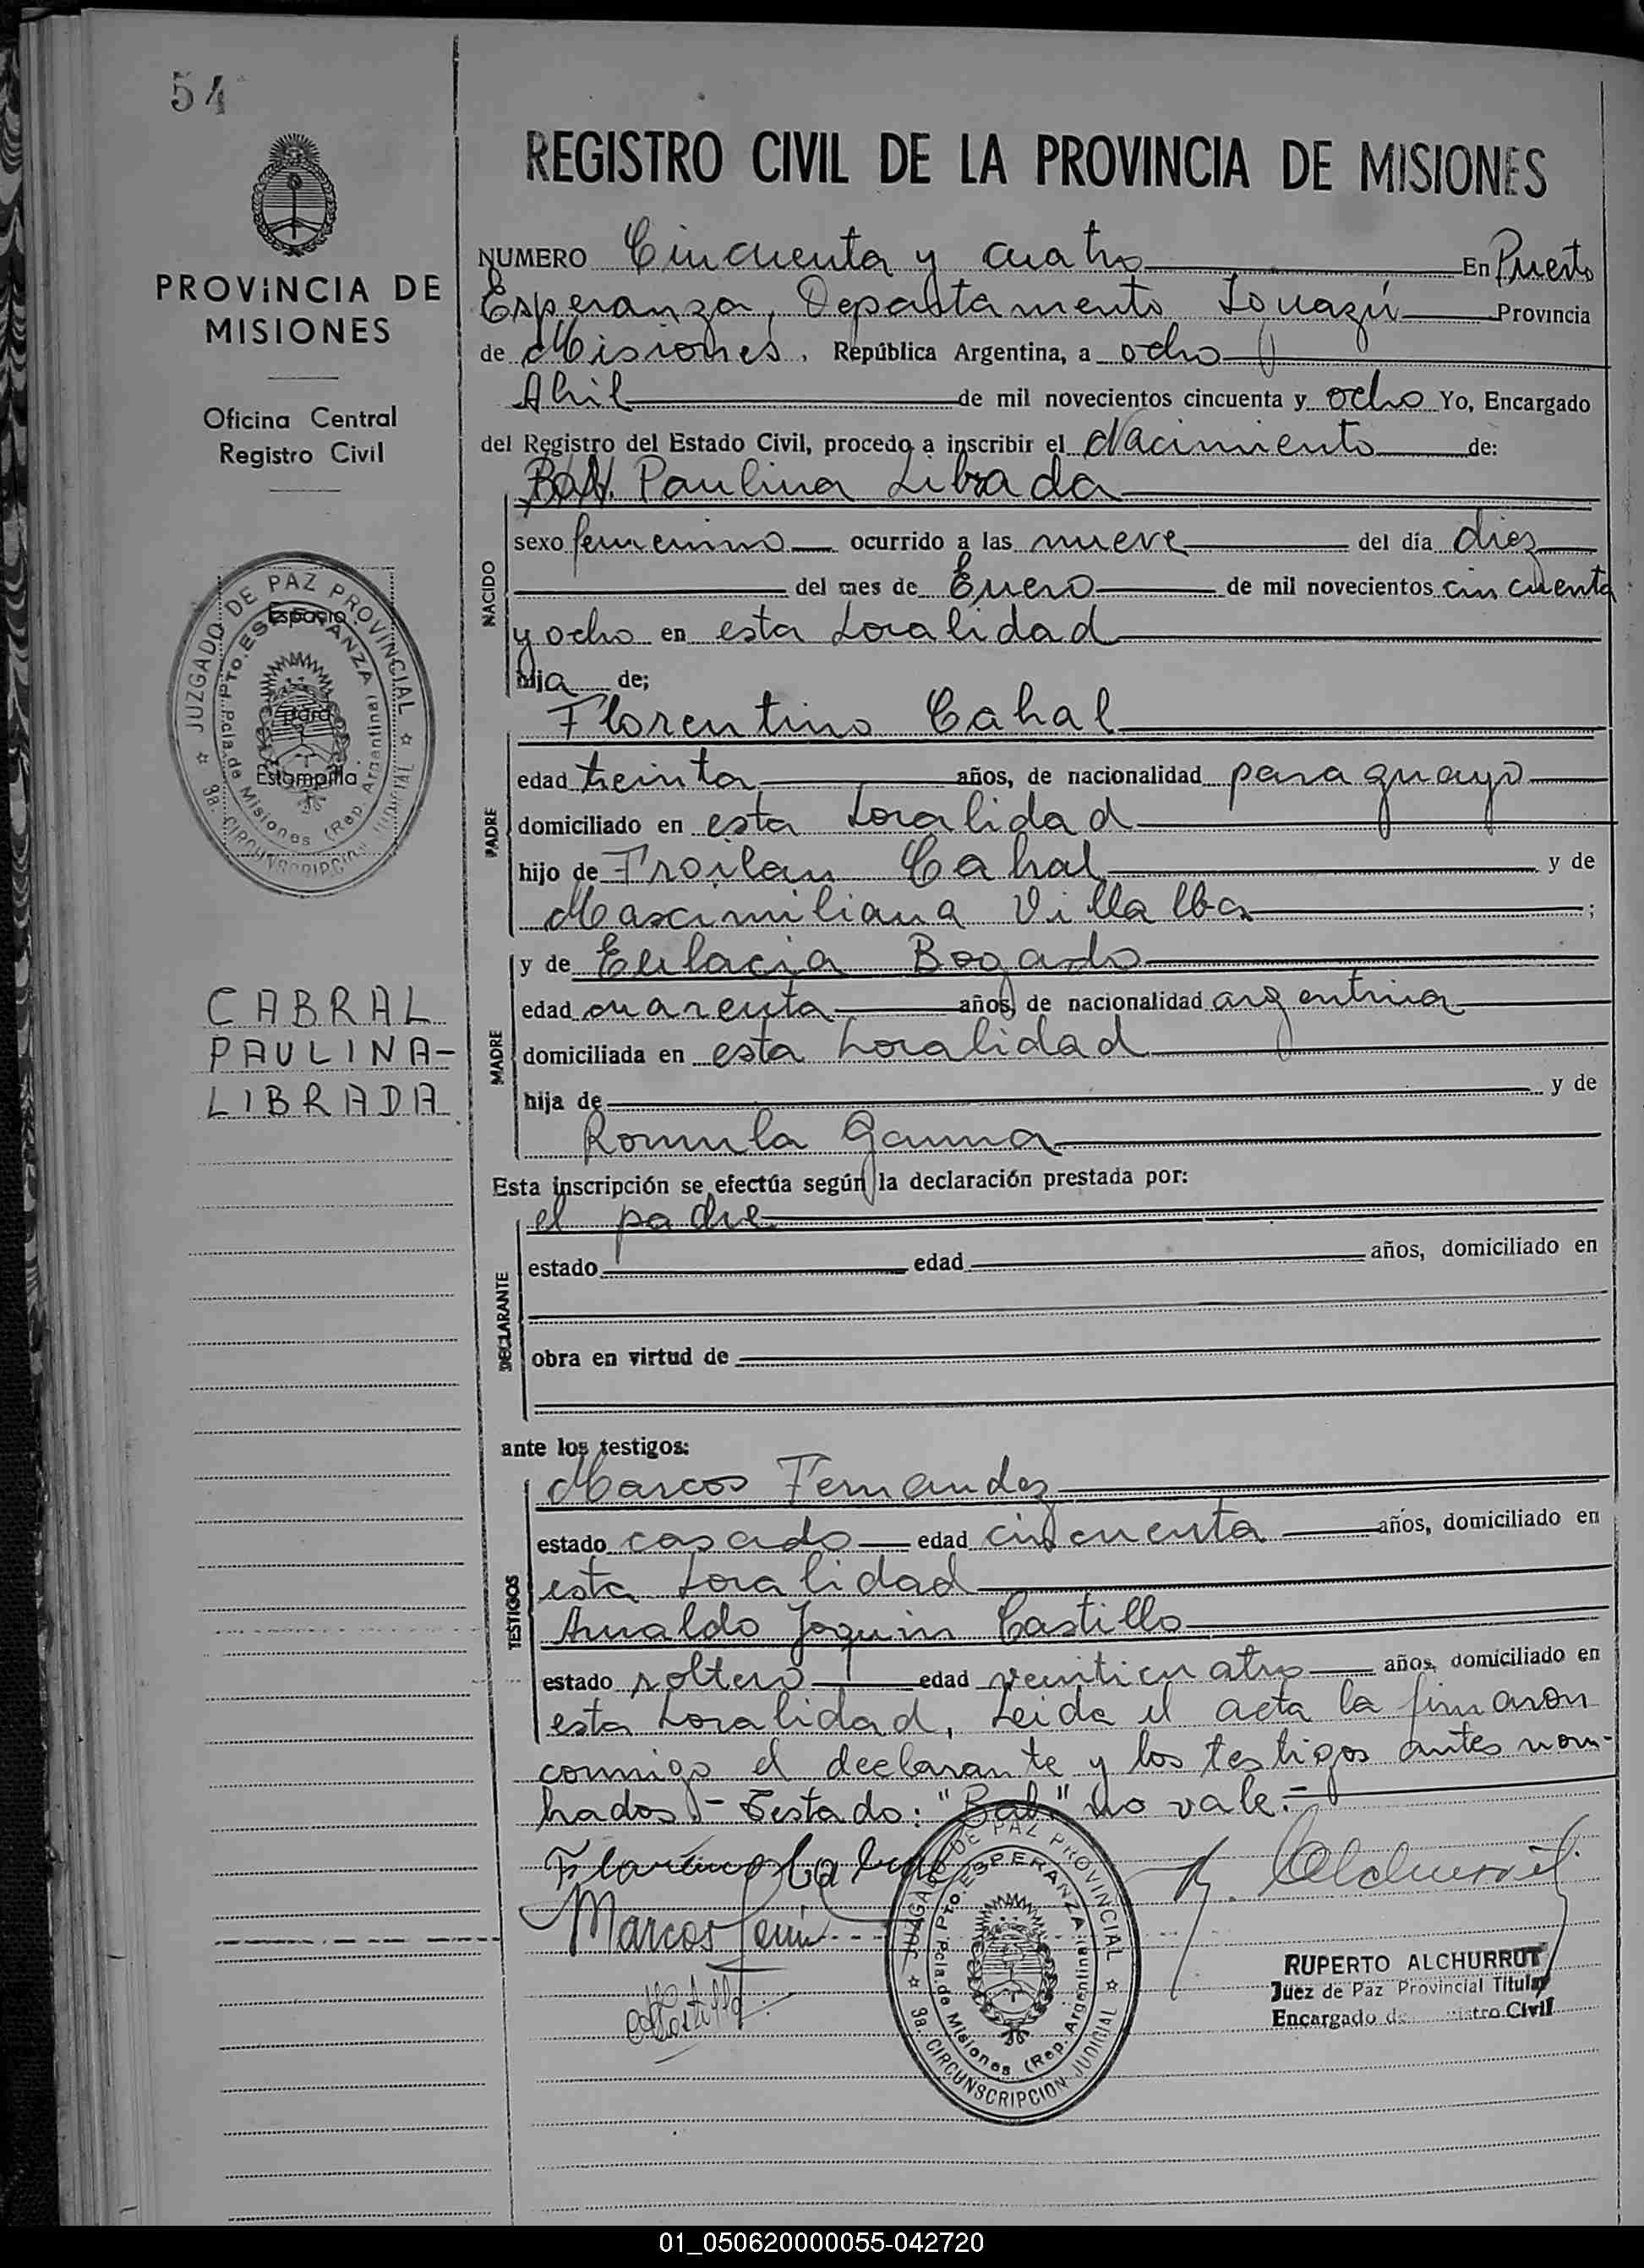 54
REGISTRO CIVIL DE LA PROVINCIA DE MISIONES
PROVINCIA DE
MISIONES
Oficina Central
Registro Civil
JUZGADO DE PAZ PROVINCIAL
Pto. ESPERANZA
Pcia. de Misiones (Rep. Argentina)
9a. CIRCUNSCRIPCION JUDICIAL
Espacio
para
Estampilla
CABRAL
PAULINA-
LIBRADA
NUMERO Cincuenta y cuatro En Puerto
Esperanza, Departamento Iguazú Provincia
de Misiones, República Argentina, a ocho
Abril de mil novecientos cincuenta y ocho Yo, Encargado
del Registro del Estado Civil, procedo a inscribir el Nacimiento de:
Paulina Librada
NACIDO
sexo femenino ocurrido a las nueve del día diez
del mes de Enero de mil novecientos cincuenta
y ocho en esta Localidad
hija de;
Florentino Cabral
PADRE
edad treinta años, de nacionalidad paraguayo
domiciliado en esta Localidad
hijo de Troilan Cabral y de
Mascimiliana Villalba ;
y de Eulacia Bogado
MADRE
edad cuarenta años, de nacionalidad argentina
domiciliada en esta Localidad
hija de y de
Romula Gauna
Esta inscripción se efectúa según la declaración prestada por:
el padre
DECLARANTE
estado edad años, domiciliado en
obra en virtud de
ante los testigos:
Marcos Fernandez
TESTIGOS
estado casado edad cincuenta años, domiciliado en
esta Localidad
Arnaldo Joquin Castillo
estado soltero edad veinticuatro años, domiciliado en
esta Localidad, Leida el acta la firmaron
conmigo el declarante y los testigos antes nom-
brados - Testado: "Bab" no vale.=
Marcos
JUZGADO DE PAZ PROVINCIAL
Pto. ESPERANZA
Pcia de Misiones (Rep. Argentina)
9a. CIRCUNSCRIPCION JUDICIAL
RUPERTO ALCHURRUT
Juez de Paz Provincial Titular
Encargado Civil
01_050620000055-042720